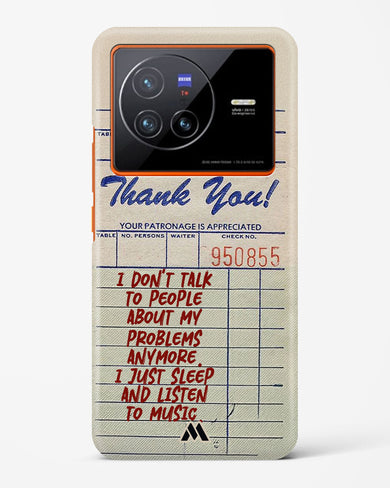 ZEISS
T*
TAB
Thank You!
YOUR PATRONAGE IS APPRECIATED
TABLE NO. PERSONS WAITER CHECK NO.
950855
I DON'T TALK
TO PEOPLE
ABOUT MY
PROBLEMS
ANYMORE.
I JUST SLEEP
AND LISTEN
TO MUSIC